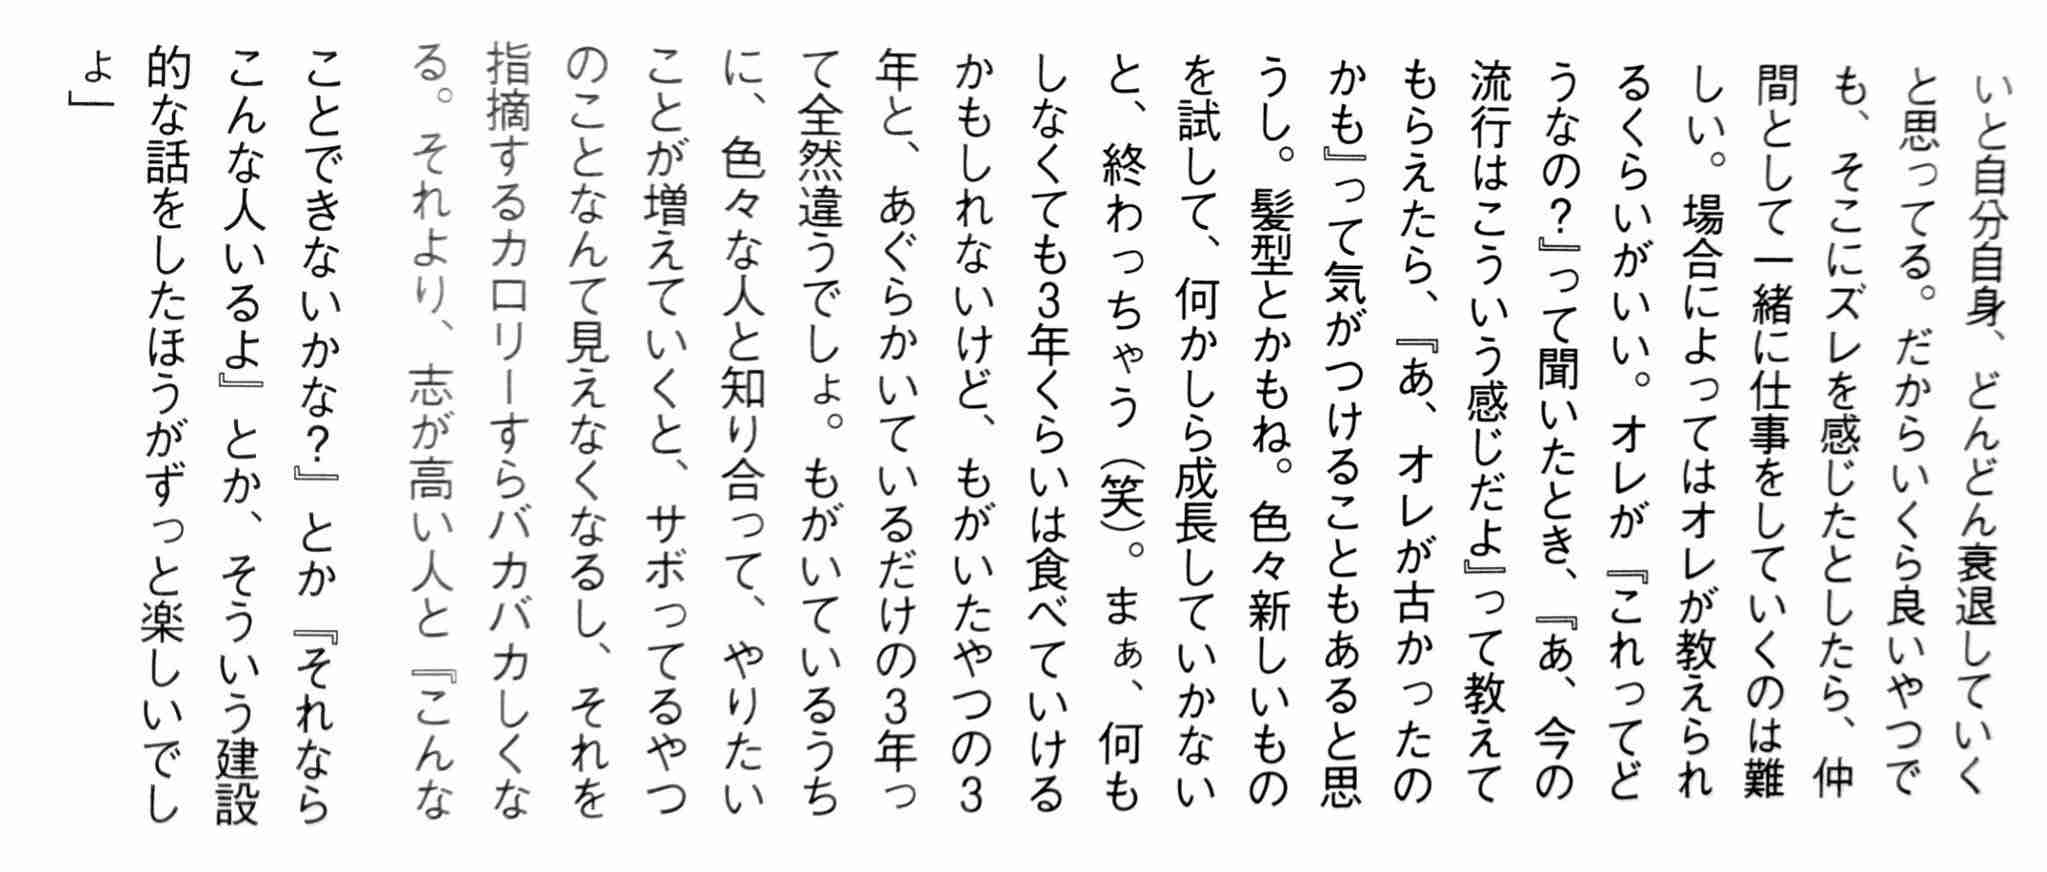 いと自分自身、どんどん衰退していく
と思ってる。だからいくら良いやつで
も、そこにズレを感じたとしたら、仲
間として一緒に仕事をしていくのは難
しい。場合によってはオレが教えられ
るくらいがいい。オレが『これってど
うなの?』って聞いたとき、『あ、今の
流行はこういう感じだよ』って教えて
もらえたら、『あ、オレが古かったの
かも』って気がつけることもあると思
うし。髪型とかもね。色々新しいもの
を試して、何かしら成長していかない
と、終わっちゃう(笑)。まぁ、何も
しなくても3年くらいは食べていける
かもしれないけど、もがいたやつの3
年と、あぐらかいているだけの3年っ
て全然違うでしょ。もがいているうち
に、色々な人と知り合って、やりたい
ことが増えていくと、サボってるやつ
のことなんて見えなくなるし、それを
指摘するカロリーすらバカバカしくな
る。それより、志が高い人と『こんな
ことできないかな?』とか『それなら
こんな人いるよ』とか、そういう建設
的な話をしたほうがずっと楽しいでし
ょ」